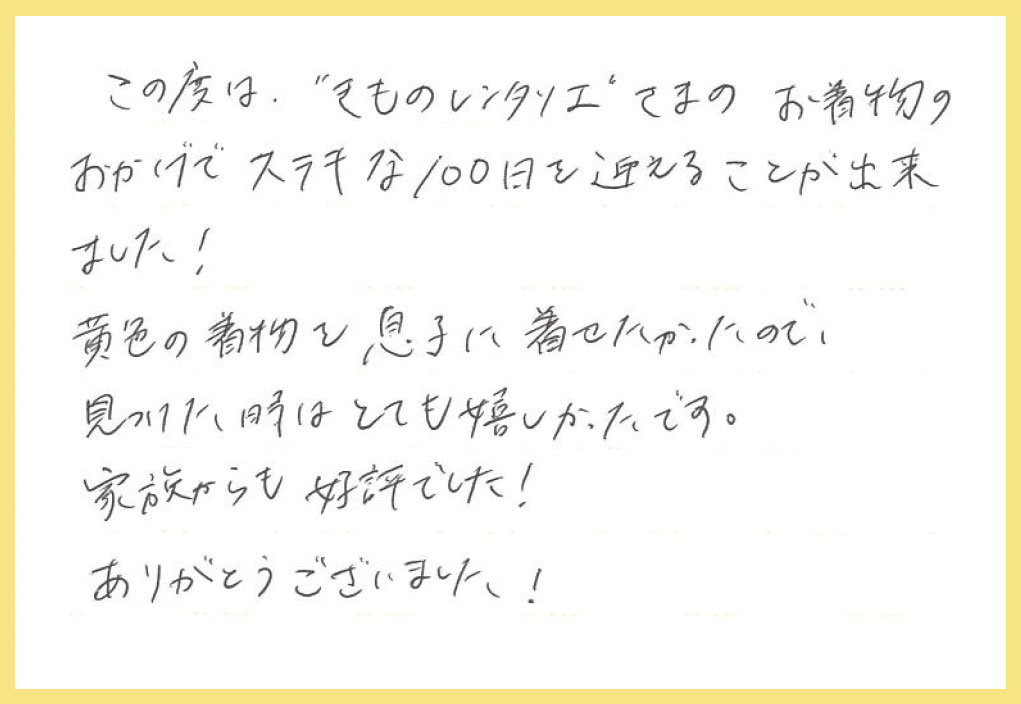 この度は、"きものレンタリエ"さまの お着物の
おかげで ステキな100日を迎えることが出来
ました!
黄色の着物を息子に着せたかったので、
見つけた時はとても嬉しかったです。
家族からも好評でした!
ありがとうございました!